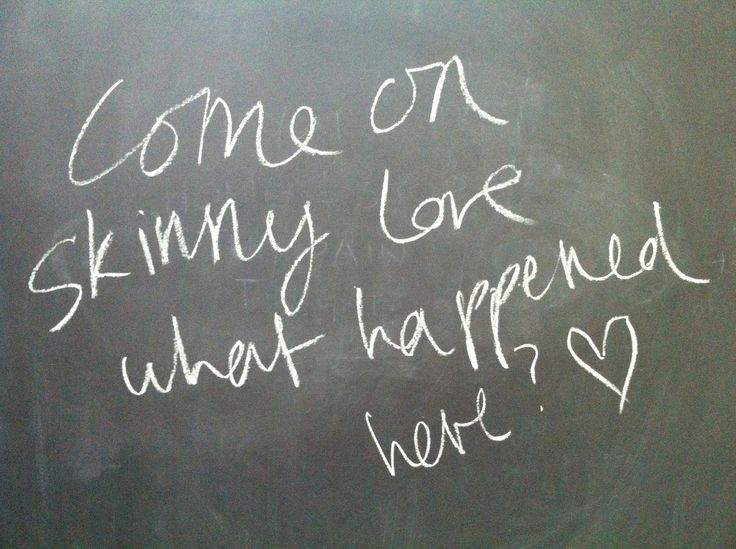 Come on
skinny love
what happened
here? ♡